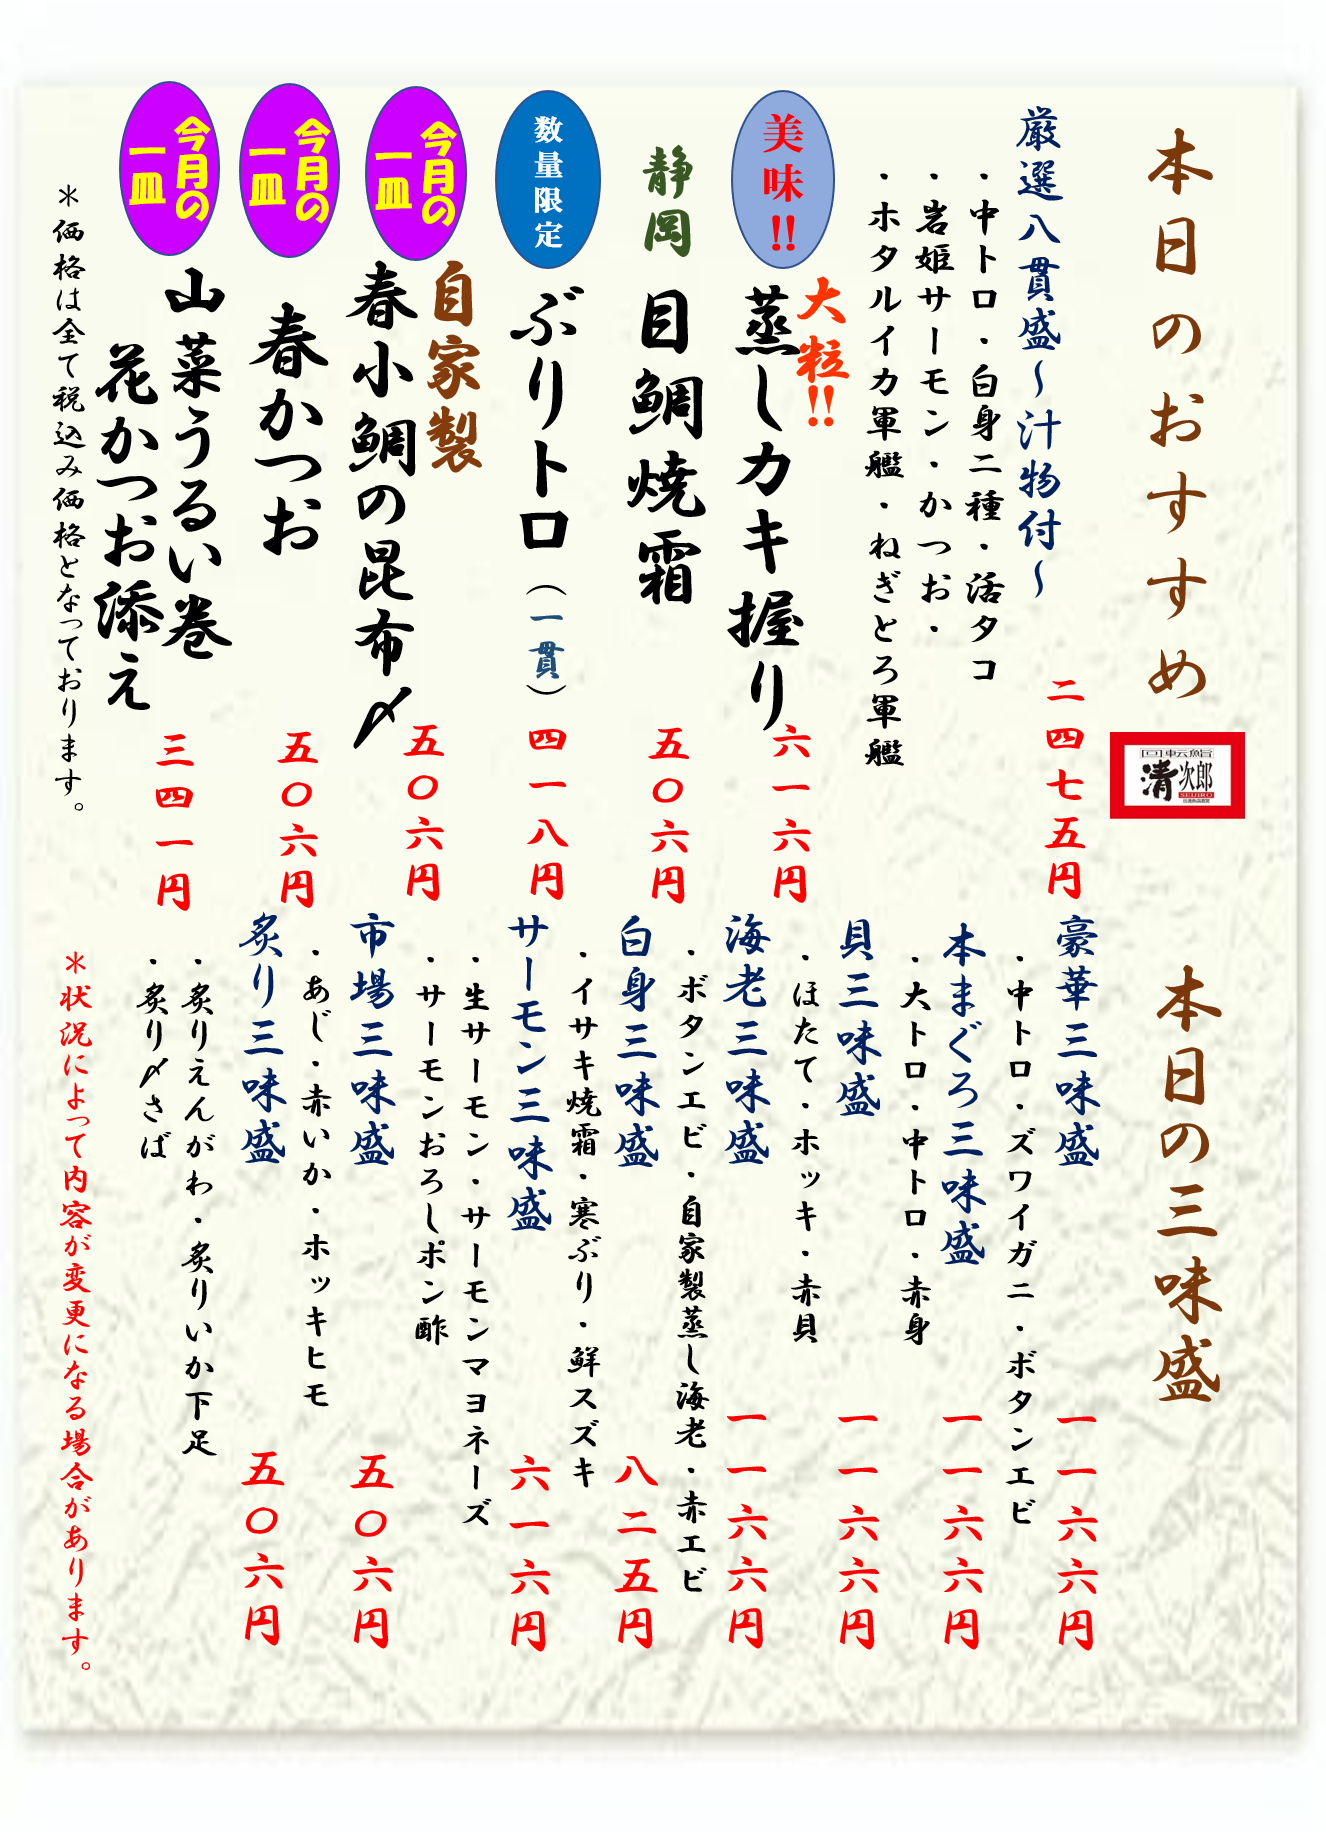 本日のおすすめ
回転鮨
清次郎
SEIJIRO
厳選八貫盛～汁物付～
二四七五円
・中トロ・白身二種・活タコ
・岩姫サーモン・かつお・
・ホタルイカ軍艦・ねぎとろ軍艦
美味!!
大粒!!
蒸しカキ握り
六一六円
静岡
目鯛焼霜
五〇六円
数量限定
ぶりトロ（一貫）
四一八円
今月の
一皿
自家製
春小鯛の昆布〆
五〇六円
今月の
一皿
春かつお
五〇六円
今月の
一皿
山菜うるい巻
花かつお添え
三四一円
＊価格は全て税込み価格となっております。
本日の三味盛
豪華三味盛
一一六六円
・中トロ・ズワイガニ・ボタンエビ
本まぐろ三味盛
一一六六円
・大トロ・中トロ・赤身
貝三味盛
一一六六円
・ほたて・ホッキ・赤貝
海老三味盛
一一六六円
・ボタンエビ・自家製蒸し海老・赤エビ
白身三味盛
八二五円
・イサキ焼霜・寒ぶり・鮮スズキ
サーモン三味盛
六一六円
・生サーモン・サーモンマヨネーズ
・サーモンおろしポン酢
市場三味盛
五〇六円
・あじ・赤いか・ホッキヒモ
炙り三味盛
五〇六円
・炙りえんがわ・炙りいか下足
・炙り〆さば
＊状況によって内容が変更になる場合があります。